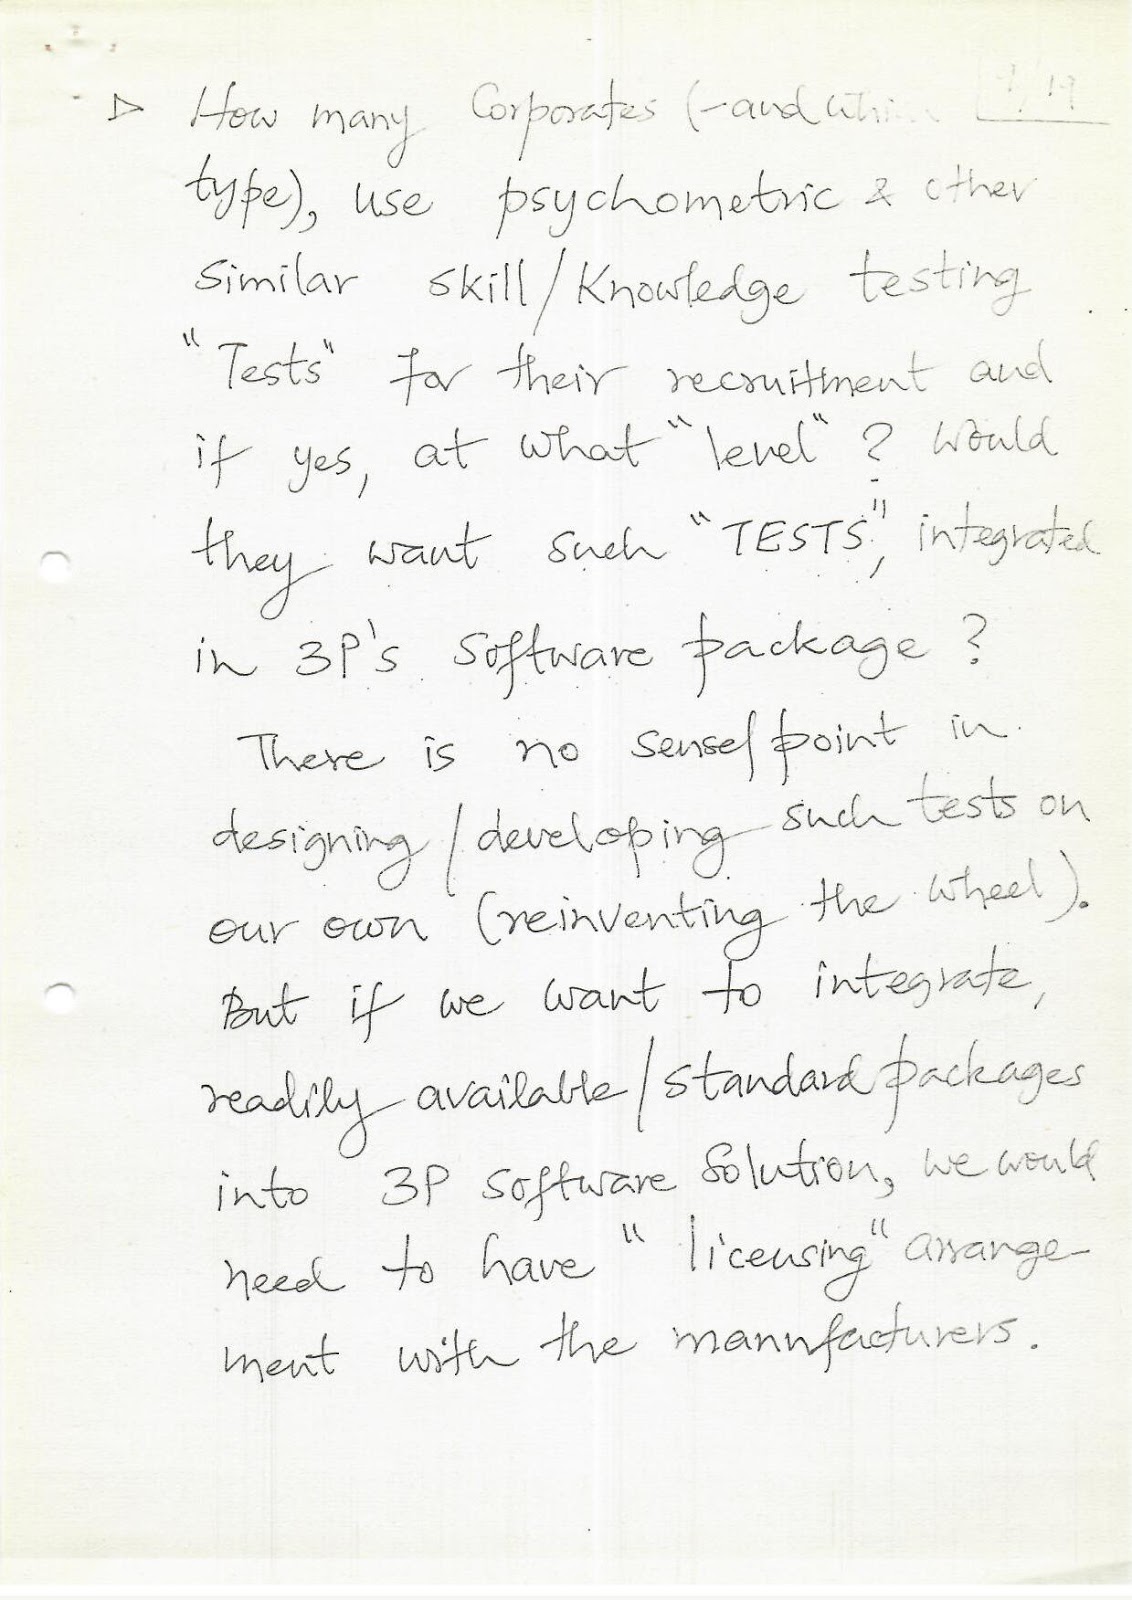 ▷ How many Corporates (- and which
type), use psychometric & other
similar skill/Knowledge testing
"Tests" for their recruitment and
if yes, at what "level"? Would
they want such "TESTS", integrated
in 3P's software package?
There is no sense/point in
designing/developing such tests on
our own (reinventing the wheel).
But if we want to integrate,
readily available/standard packages
into 3P software solution, we would
need to have "licensing" arrange-
ment with the manufacturers.